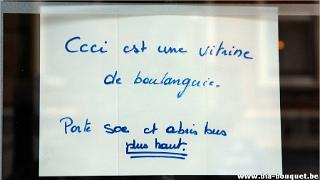 Ceci est une vitrine
de boulangerie.
Porte soe et abris bus
plus haut.
www.bia-bouquet.be